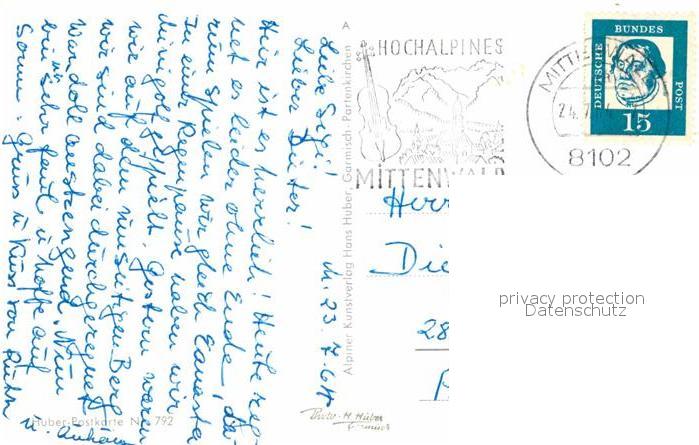 Liebe Sigi!
Lieber Dieter!
M. 23. 7. 64
Hier ist es herrlich! Heute reg-
net es leider ohne Ende, da-
rum spielen wir gleich Canasta
In einer Regenpause haben wir
Minigolf gespielt. Gestern waren
wir auf dem Berg
wir sind dabei durchgeregnet.
War doll anstrengend. Nun
bin ich sehr faul u. hoffe auf
Sonne. Gruss u. Kuss von
u.
Huber-Postkarte Nr. 792
A
Alpiner Kunstverlag Hans Huber, Garmisch-Partenkirchen
Photo-H. Huber
Garmisch
HOCHALPINES
MITTENWALD
MITTENWALD
24.7.
8102
DEUTSCHE
BUNDES
POST
15
Herr
Die
28
privacy protection
Datenschutz